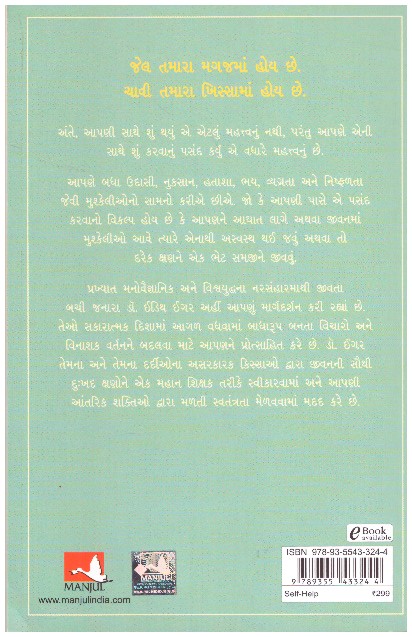 જેલ તમારા મગજમાં હોય છે.
ચાવી તમારા ખિસ્સામાં હોય છે.
અંતે, આપણી સાથે શું થયું એ એટલું મહત્ત્વનું નથી, પરંતુ આપણે એની
સાથે શું કરવાનું પસંદ કર્યું એ વધારે મહત્ત્વનું છે.
આપણે બધા ઉદાસી, નુકસાન, હતાશા, ભય, વ્યગ્રતા અને નિષ્ફળતા
જેવી મુશ્કેલીઓનો સામનો કરીએ છીએ. જો કે આપણી પાસે એ પસંદ
કરવાનો વિકલ્પ હોય છે કે આપણને આઘાત લાગે અથવા જીવનમાં
મુશ્કેલીઓ આવે ત્યારે એનાથી અસ્વસ્થ થઈ જવું અથવા તો
દરેક ક્ષણને એક ભેટ સમજીને જીવવું.
પ્રખ્યાત મનોવૈજ્ઞાનિક અને વિશ્વયુદ્ધના નરસંહારમાથી જીવતા
બચી જનારા ડૉ. ઈડિથ ઈગર અહીં આપણું માર્ગદર્શન કરી રહ્યાં છે.
તેઓ સકારાત્મક દિશામાં આગળ વધવામાં બાધારૂપ બનતા વિચારો અને
વિનાશક વર્તનને બદલવા માટે આપણને પ્રોત્સાહિત કરે છે. ડૉ. ઈગર
તેમના અને તેમના દર્દીઓના અસરકારક કિસ્સાઓ દ્વારા જીવનની સૌથી
દુઃખદ ક્ષણોને એક મહાન શિક્ષક તરીકે સ્વીકારવામાં અને આપણી
આંતરિક શક્તિઓ દ્વારા મળતી સ્વતંત્રતા મેળવવામાં મદદ કરે છે.
eBook
available
ISBN 978-93-5543-324-4
9 789355 433244
Self-Help ₹299
MANJUL
www.manjulindia.com
MANJUL